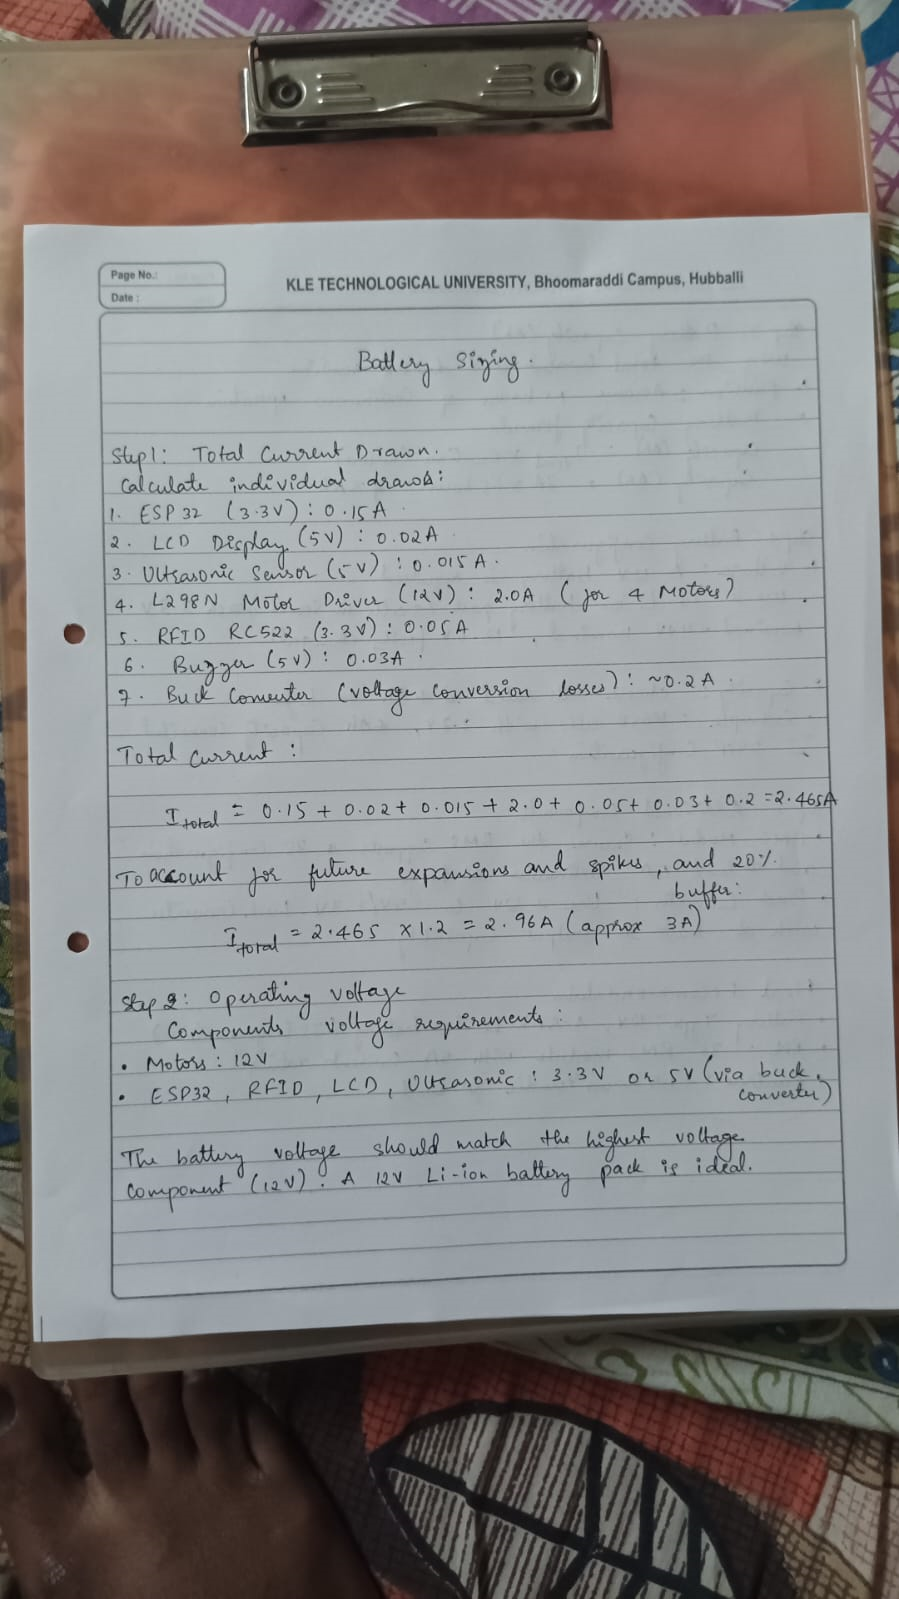 Page No.:
Date :
KLE TECHNOLOGICAL UNIVERSITY, Bhoomaraddi Campus, Hubballi
Battery Sizing.
Step1: Total Current Drawn.
Calculate individual draws:
1. ESP 32 (3.3V) : 0.15A
2. LCD Display (5V) : 0.02A
3. Ultrasonic Sensor (5V) : 0.015A.
4. L298N Motor Driver (12V) : 2.0A (for 4 Motors)
5. RFID RC522 (3.3V) : 0.05A
6. Buzzer (5V) : 0.03A.
7. Buck Converter (voltage conversion losses) : ~0.2A.
Total Current :
I total = 0.15 + 0.02 + 0.015 + 2.0 + 0.05 + 0.03 + 0.2 = 2.465A
To account for future expansions and spikes, and 20%
buffer:
I total = 2.465 x 1.2 = 2.96A (approx 3A)
Step 2: Operating voltage
Components voltage requirements :
• Motors : 12V
• ESP32, RFID, LCD, Ultrasonic : 3.3V or 5V (via buck
converter)
The battery voltage should match the highest voltage
component (12V). A 12V Li-ion battery pack is ideal.